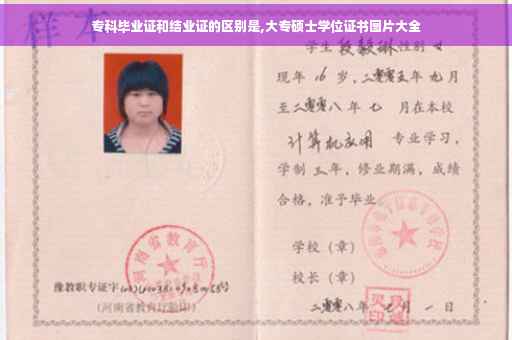 专科毕业证和结业证的区别是,大专硕士学位证书图片大全
样本
学生 段毅琳 性别 女
现年 16 岁,二零零五年 九月
至二零零八年 七 月在本校
计算机应用 专业学习,
学制 三年,修业期满,成绩
合格,准予毕业
学校(章)
校长(章)
二零零八年 七月 一 日
河南省教育厅
豫教职专证字
(河南省教育厅验印)